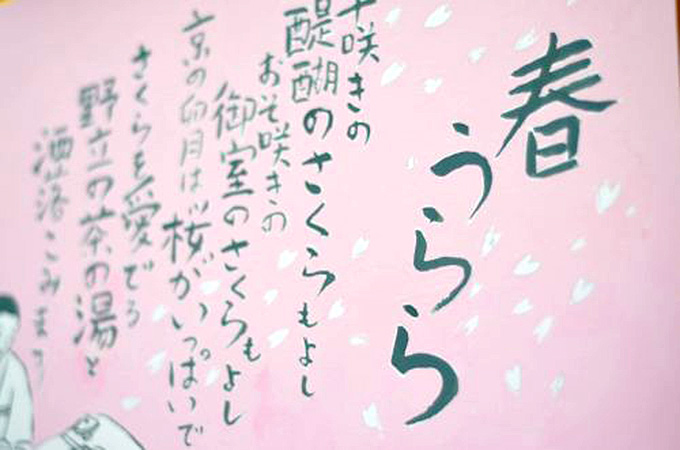 春うらら
咲きの
醍醐のさくらもよし
おそ咲きの
御室のさくらもよし
京の卯月は
桜がいっぱいで
さくらを愛でる
野立の茶の湯と
洒落こみます